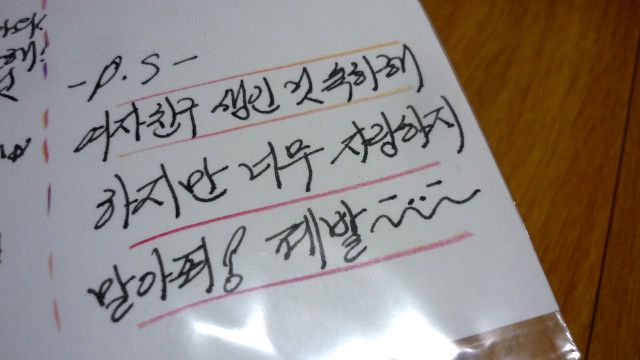 -P.S-
여자친구 생긴 것 축하해
하지만 너무 자랑하지
말아줘! 제발~~